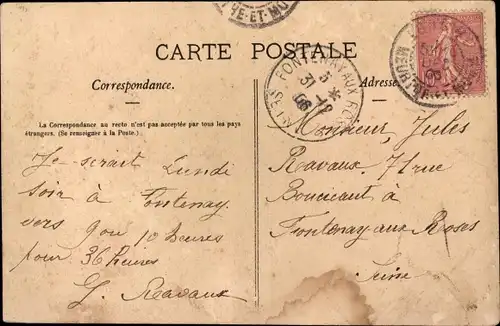 CARTE POSTALE
Correspondance.
Adresse
La Correspondance au recto n'est pas acceptée par tous les pays
étrangers. (Se renseigner à la Poste.)
FONTENAY-AUX-ROSES
5
31-12
06
MEURTHE-ET-M
Je serait Lundi
soir à Fontenay
vers 9 ou 10 heures
pour 36 heures
G. Ravaux
Monsieur Jules
Ravaux. 71 rue
Boucicaut à
Fontenay aux Roses
Seine